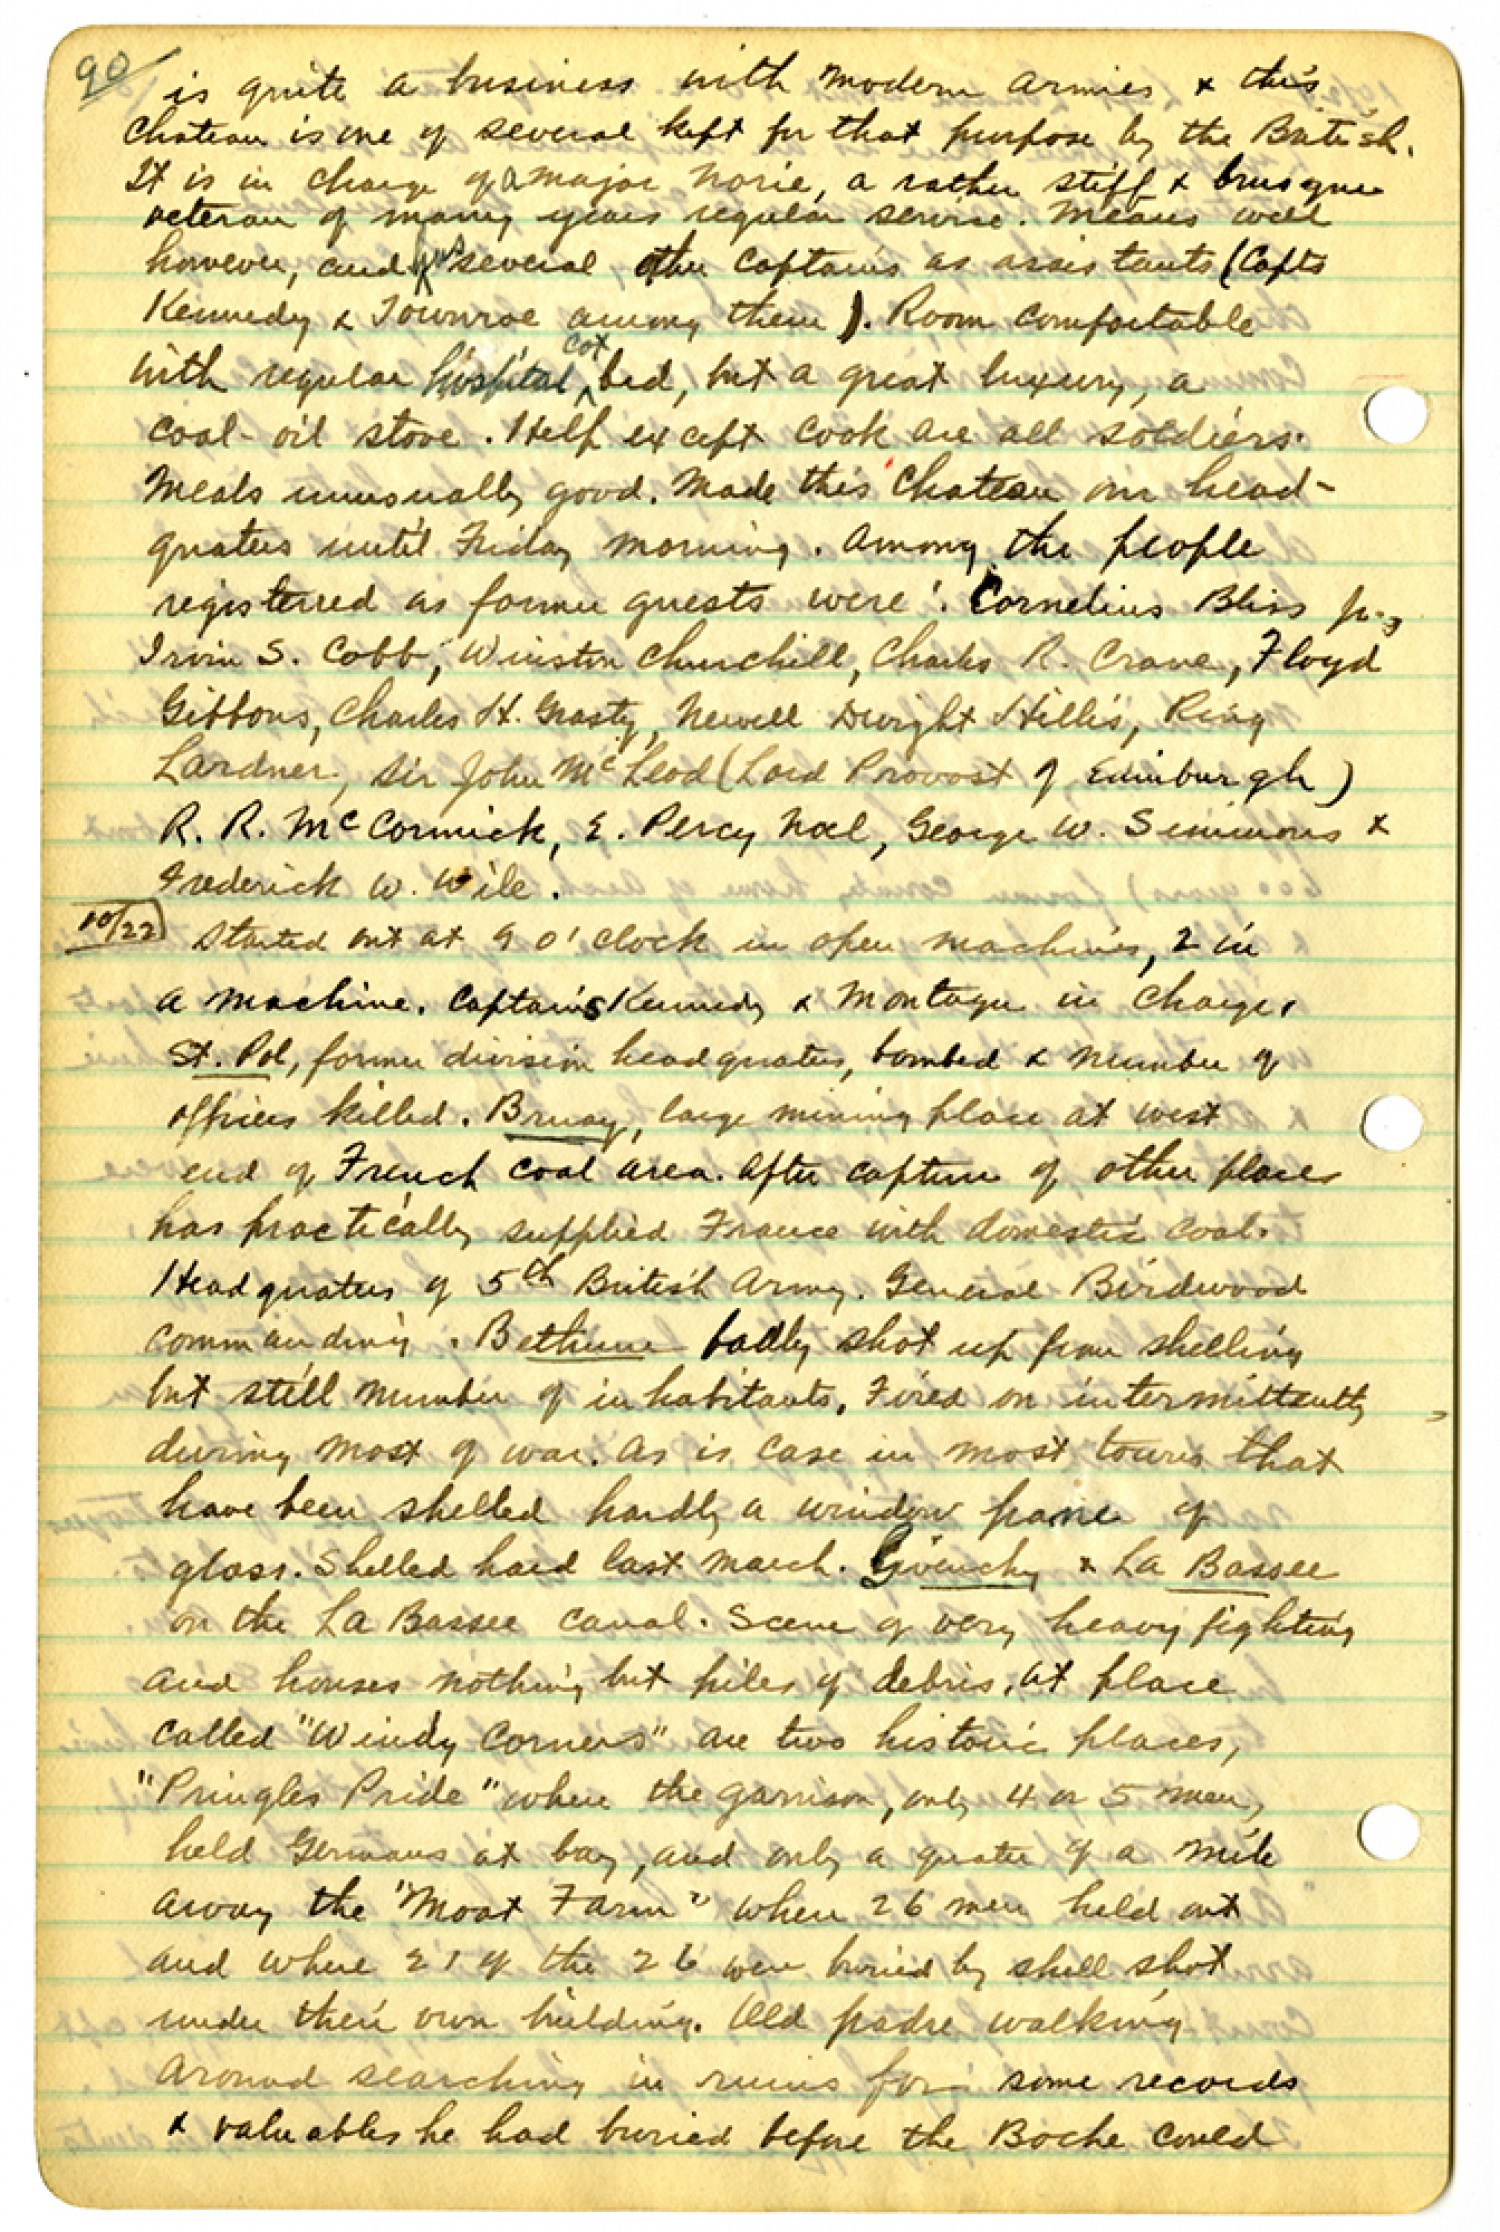 90
is quite a business with modern armies & this
Chateau is one of several kept for that purpose by the British.
It is in charge of a Major Norie, a rather stiff & brusque
veteran of many years regular service. Means well
however, and has several other Captains as assistants (Capts
Kennedy & Townroe among them). Room comfortable
with regular hospital cot bed, but a great luxury, a
coal-oil stove. Help except cook are all soldiers.
Meals unusually good. Made this Chateau our head-
quaters until Friday morning. Among the people
registerred as former guests were: Cornelius Bliss Jr.,
Irvin S. Cobb, Winston Churchill, Charles R. Crane, Floyd
Gibbons, Charles H. Grasty, Newell Dwight Hillis, Ring
Lardner, Sir John McLeod (Lord Provost of Edinburgh)
R. R. McCormick, E. Percy Noel, George W. Simmons &
Frederick W. Wile.
10/22 Started out at 9 o'clock in open machines, 2 in
a machine. Captains Kennedy & Montague in charge.
St. Pol, former division headquaters, bombed & number of
officers killed. Bruay, large mining place at west
end of French coal area. After capture of other places
has practically supplied France with domestic coal.
Headquaters of 5th British Army. General Birdwood
commanding. Bethune badly shot up from shelling
but still number of inhabitants. Fired on intermittently
during most of war. As is case in most towns that
have been shelled hardly a window pane of
glass. Shelled hard last March. Givenchy & La Bassee
on the La Bassee Canal. Scene of very heavy fighting
and houses nothing but piles of debris. At place
called "Windy Corners" are two historic places,
"Pringles Pride" where the garrison, only 4 or 5 men,
held Germans at bay, and only a quater of a mile
away the "Moat Farm" where 26 men held out
and where 21 of the 26 were buried by shell shot
under their own building. Old padre walking
around searching in ruins for some records
& valuables he had buried before the Boche could